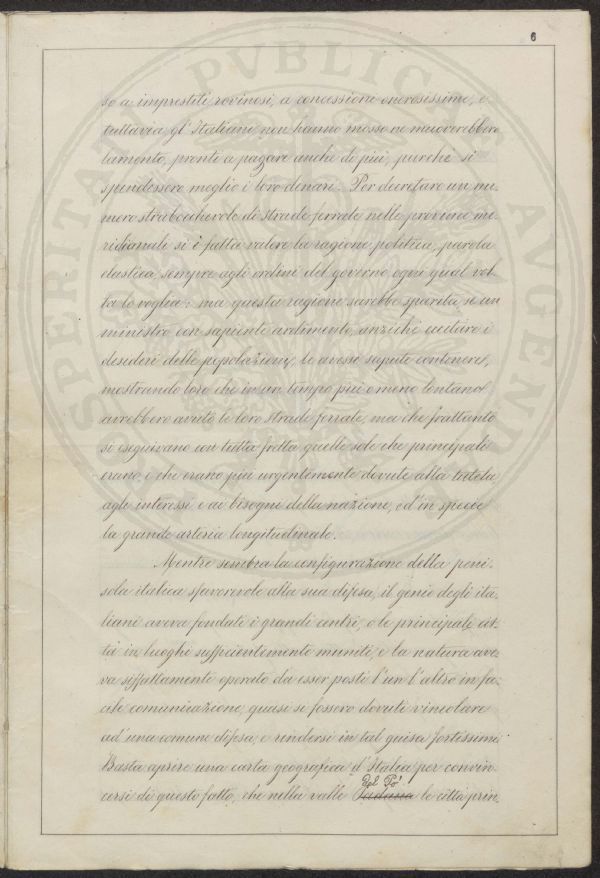 6
so a imprestiti rovinosi, a concessioni onerosissime, e
tuttavia gl'Italiani non hanno mosso ne muoverebbero
lamento, pronti a pagare anche di più, purchè si
spendessero meglio i loro denari. Per decretare un nu-
mero strabocchevole di strade ferrate nelle provincie me-
ridionali si è fatta valere la ragione politica, parola
elastica, sempre agli ordini del governo ogni qual vol-
ta lo voglia: ma questa ragione sarebbe sparita, se un
ministro con sapiente ardimento, anzichè eccitare i
desideri delle popolazioni, le avesse sapute contenere,
mostrando loro che in un tempo più o meno lontano
avrebbero avuto le loro strade ferrate, ma che frattanto
si eseguivano con tutta fretta quelle sole che principali
erano, e che erano più urgentemente dovute alla tutela
agli interessi e ai bisogni della nazione, ed in specie
la grande arteria longitudinale.
Mentre sembra la configurazione della peni-
sola italica sfavorevole alla sua difesa, il genio degli ita-
liani aveva fondati i grandi centri, o le principali cit-
tà in luoghi sufficientemente muniti, e la natura ave-
va siffattamente operato da esser posti l'un l'altro in fa-
cile comunicazione, quasi si fossero dovuti vincolare
ad una comune difesa, e rendersi in tal guisa fortissimi.
Basta aprire una carta geografica d'Italia per convin-
del Po'
cersi di questo fatto, che nella valle Padana le città prin-
PVBLICAE AVGENDAE